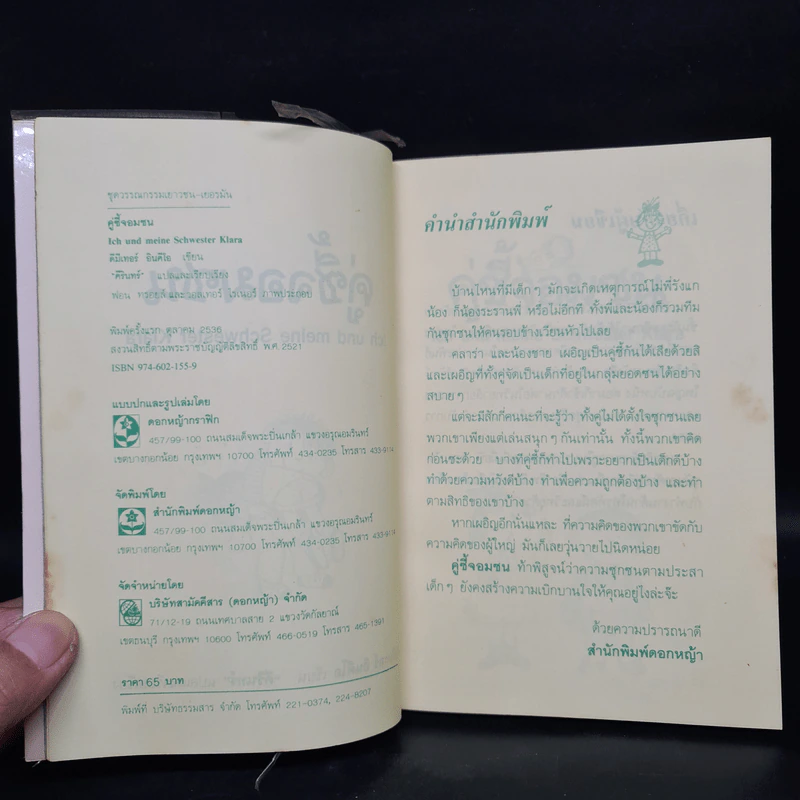 ชุดวรรณกรรมเยาวชน-เยอรมัน
คู่ซี้จอมซน
Ich und meine Schwester Klara
ดิมิเทอร์ อินคิโอ เขียน
"ศิรินทร์" แปลและเรียบเรียง
พิมพ์ครั้งแรก ตุลาคม 2536
สงวนสิทธิ์ตามพระราชบัญญัติลิขสิทธิ์ พ.ศ.2521
ISBN 974-602-155-9
แบบปกและรูปเล่มโดย
ดอกหญ้ากราฟิก
457/99-100 ถนนสมเด็จพระปิ่นเกล้า แขวงอรุณอมรินทร์
เขตบางกอกน้อย กรุงเทพฯ 10700 โทรศัพท์ 434-0235 โทรสาร 433-9114
จัดพิมพ์โดย
สำนักพิมพ์ดอกหญ้า
457/99-100 ถนนสมเด็จพระปิ่นเกล้า แขวงอรุณอมรินทร์
เขตบางกอกน้อย กรุงเทพฯ 10700 โทรศัพท์ 434-0235 โทรสาร 433-9114
จัดจำหน่ายโดย
บริษัทสามัคคีสาร (ดอกหญ้า) จำกัด
71/12-19 ถนนเทศบาลสาย 2 แขวงวัดกัลยาณ์
เขตธนบุรี กรุงเทพฯ 10600 โทรศัพท์ 466-0519 โทรสาร 465-1391
ราคา 65 บาท
พิมพ์ที่ บริษัทธรรมสาร จำกัด โทรศัพท์ 221-0374, 224-8207
คำนำสำนักพิมพ์
บ้านไหนที่มีเด็กๆ มักจะเกิดเหตุการณ์ไม่พี่รังแก
น้อง ก็น้องระรานพี่ หรือไม่อีกที ทั้งพี่และน้องก็รวมทีม
กันซุกซนให้คนรอบข้างเวียนหัวไปเลย
คลาร่า และน้องชาย เผอิญเป็นคู่ซี้กันได้เสียด้วยสิ
และเผอิญที่ทั้งคู่จัดเป็นเด็กที่อยู่ในกลุ่มยอดซนได้อย่าง
สบายๆ
แต่จะมีสักกี่คนนะที่จะรู้ว่า ทั้งคู่ไม่ได้ตั้งใจซุกซนเลย
พวกเขาเพียงแต่เล่นสนุกๆ กันเท่านั้น ทั้งนี้พวกเขาคิด
ก่อนซะด้วย บางทีคู่ซี้ก็ทำไปเพราะอยากเป็นเด็กดีบ้าง
ทำด้วยความหวังดีบ้าง ทำเพื่อความถูกต้องบ้าง และทำ
ตามสิทธิของเขาบ้าง
หากเผอิญอีกนั่นแหละ ที่ความคิดของพวกเขาขัดกับ
ความคิดของผู้ใหญ่ มันก็เลยวุ่นวายไปนิดหน่อย
คู่ซี้จอมซน ท้าพิสูจน์ว่าความซุกซนตามประสา
เด็กๆ ยังคงสร้างความเบิกบานใจให้คุณอยู่ไงล่ะจ๊ะ
ด้วยความปรารถนาดี
สำนักพิมพ์ดอกหญ้า